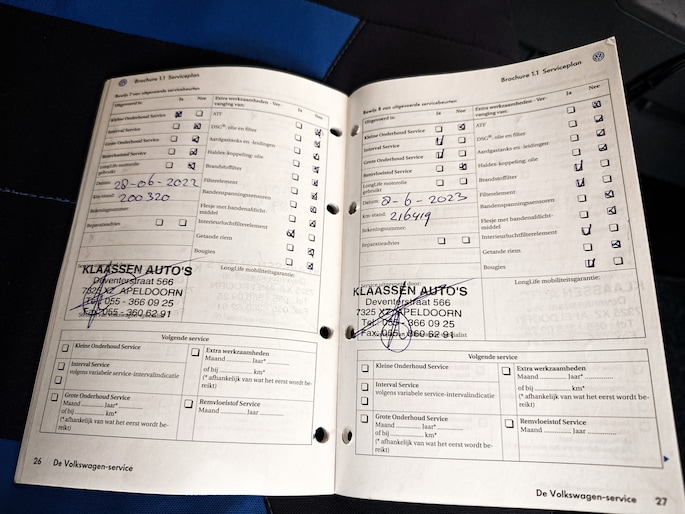 Brochure 1.1 Serviceplan
Bewijs 7 van uitgevoerde servicebeurten
Uitgevoerd is: Ja Nee
Kleine Onderhoud Service
Interval Service
Grote Onderhoud Service
Remvloeistof Service
LongLife motorolie
gebruikt
Datum: 28-06-2022
Km-stand: 200320
Rekeningnummer:
Reparatieadvies
Extra werkzaamheden - Ver-
vanging van: Ja Nee
ATF
DSG®, olie en filter
Aardgastanks en -leidingen
Haldex-koppeling: olie
Brandstoffilter
Filterelement
Bandenspanningssensoren
Flesje met bandenafdicht-
middel
Interieurluchtfilterelement
Getande riem
Bougies
LongLife mobiliteitsgarantie:
KLAASSEN AUTO'S
Deventerstraat 566
7325 XZ APELDOORN
Tel: 055 - 366 09 25
Fax: 055 - 360 62 91
Volgende service
Kleine Onderhoud Service
Interval Service
volgens variabele service-intervalindicatie
Grote Onderhoud Service
Maand .......... Jaar*
of bij .......... km*
(* afhankelijk van wat het eerst wordt be-
reikt)
Extra werkzaamheden
Maand .......... Jaar*
of bij .......... km*
(* afhankelijk van wat het eerst wordt be-
reikt)
Remvloeistof Service
Maand .......... Jaar
26 De Volkswagen-service
Brochure 1.1 Serviceplan
Bewijs 8 van uitgevoerde servicebeurten
Uitgevoerd is: Ja Nee
Kleine Onderhoud Service
Interval Service
Grote Onderhoud Service
Remvloeistof Service
LongLife motorolie
gebruikt
Datum: 2-6-2023
Km-stand: 216419
Rekeningnummer:
Reparatieadvies
Extra werkzaamheden - Ver-
vanging van: Ja Nee
ATF
DSG®, olie en filter
Aardgastanks en -leidingen
Haldex-koppeling: olie
Brandstoffilter
Filterelement
Bandenspanningssensoren
Flesje met bandenafdicht-
middel
Interieurluchtfilterelement
Getande riem
Bougies
LongLife mobiliteitsgarantie:
KLAASSEN AUTO'S
Deventerstraat 566
7325 XZ APELDOORN
Tel: 055 - 366 09 25
Fax: 055 - 360 62 91
Volgende service
Kleine Onderhoud Service
Interval Service
volgens variabele service-intervalindicatie
Grote Onderhoud Service
Maand .......... Jaar*
of bij .......... km*
(* afhankelijk van wat het eerst wordt be-
reikt)
Extra werkzaamheden
Maand .......... Jaar*
of bij .......... km*
(* afhankelijk van wat het eerst wordt be-
reikt)
Remvloeistof Service
Maand .......... Jaar
De Volkswagen-service 27